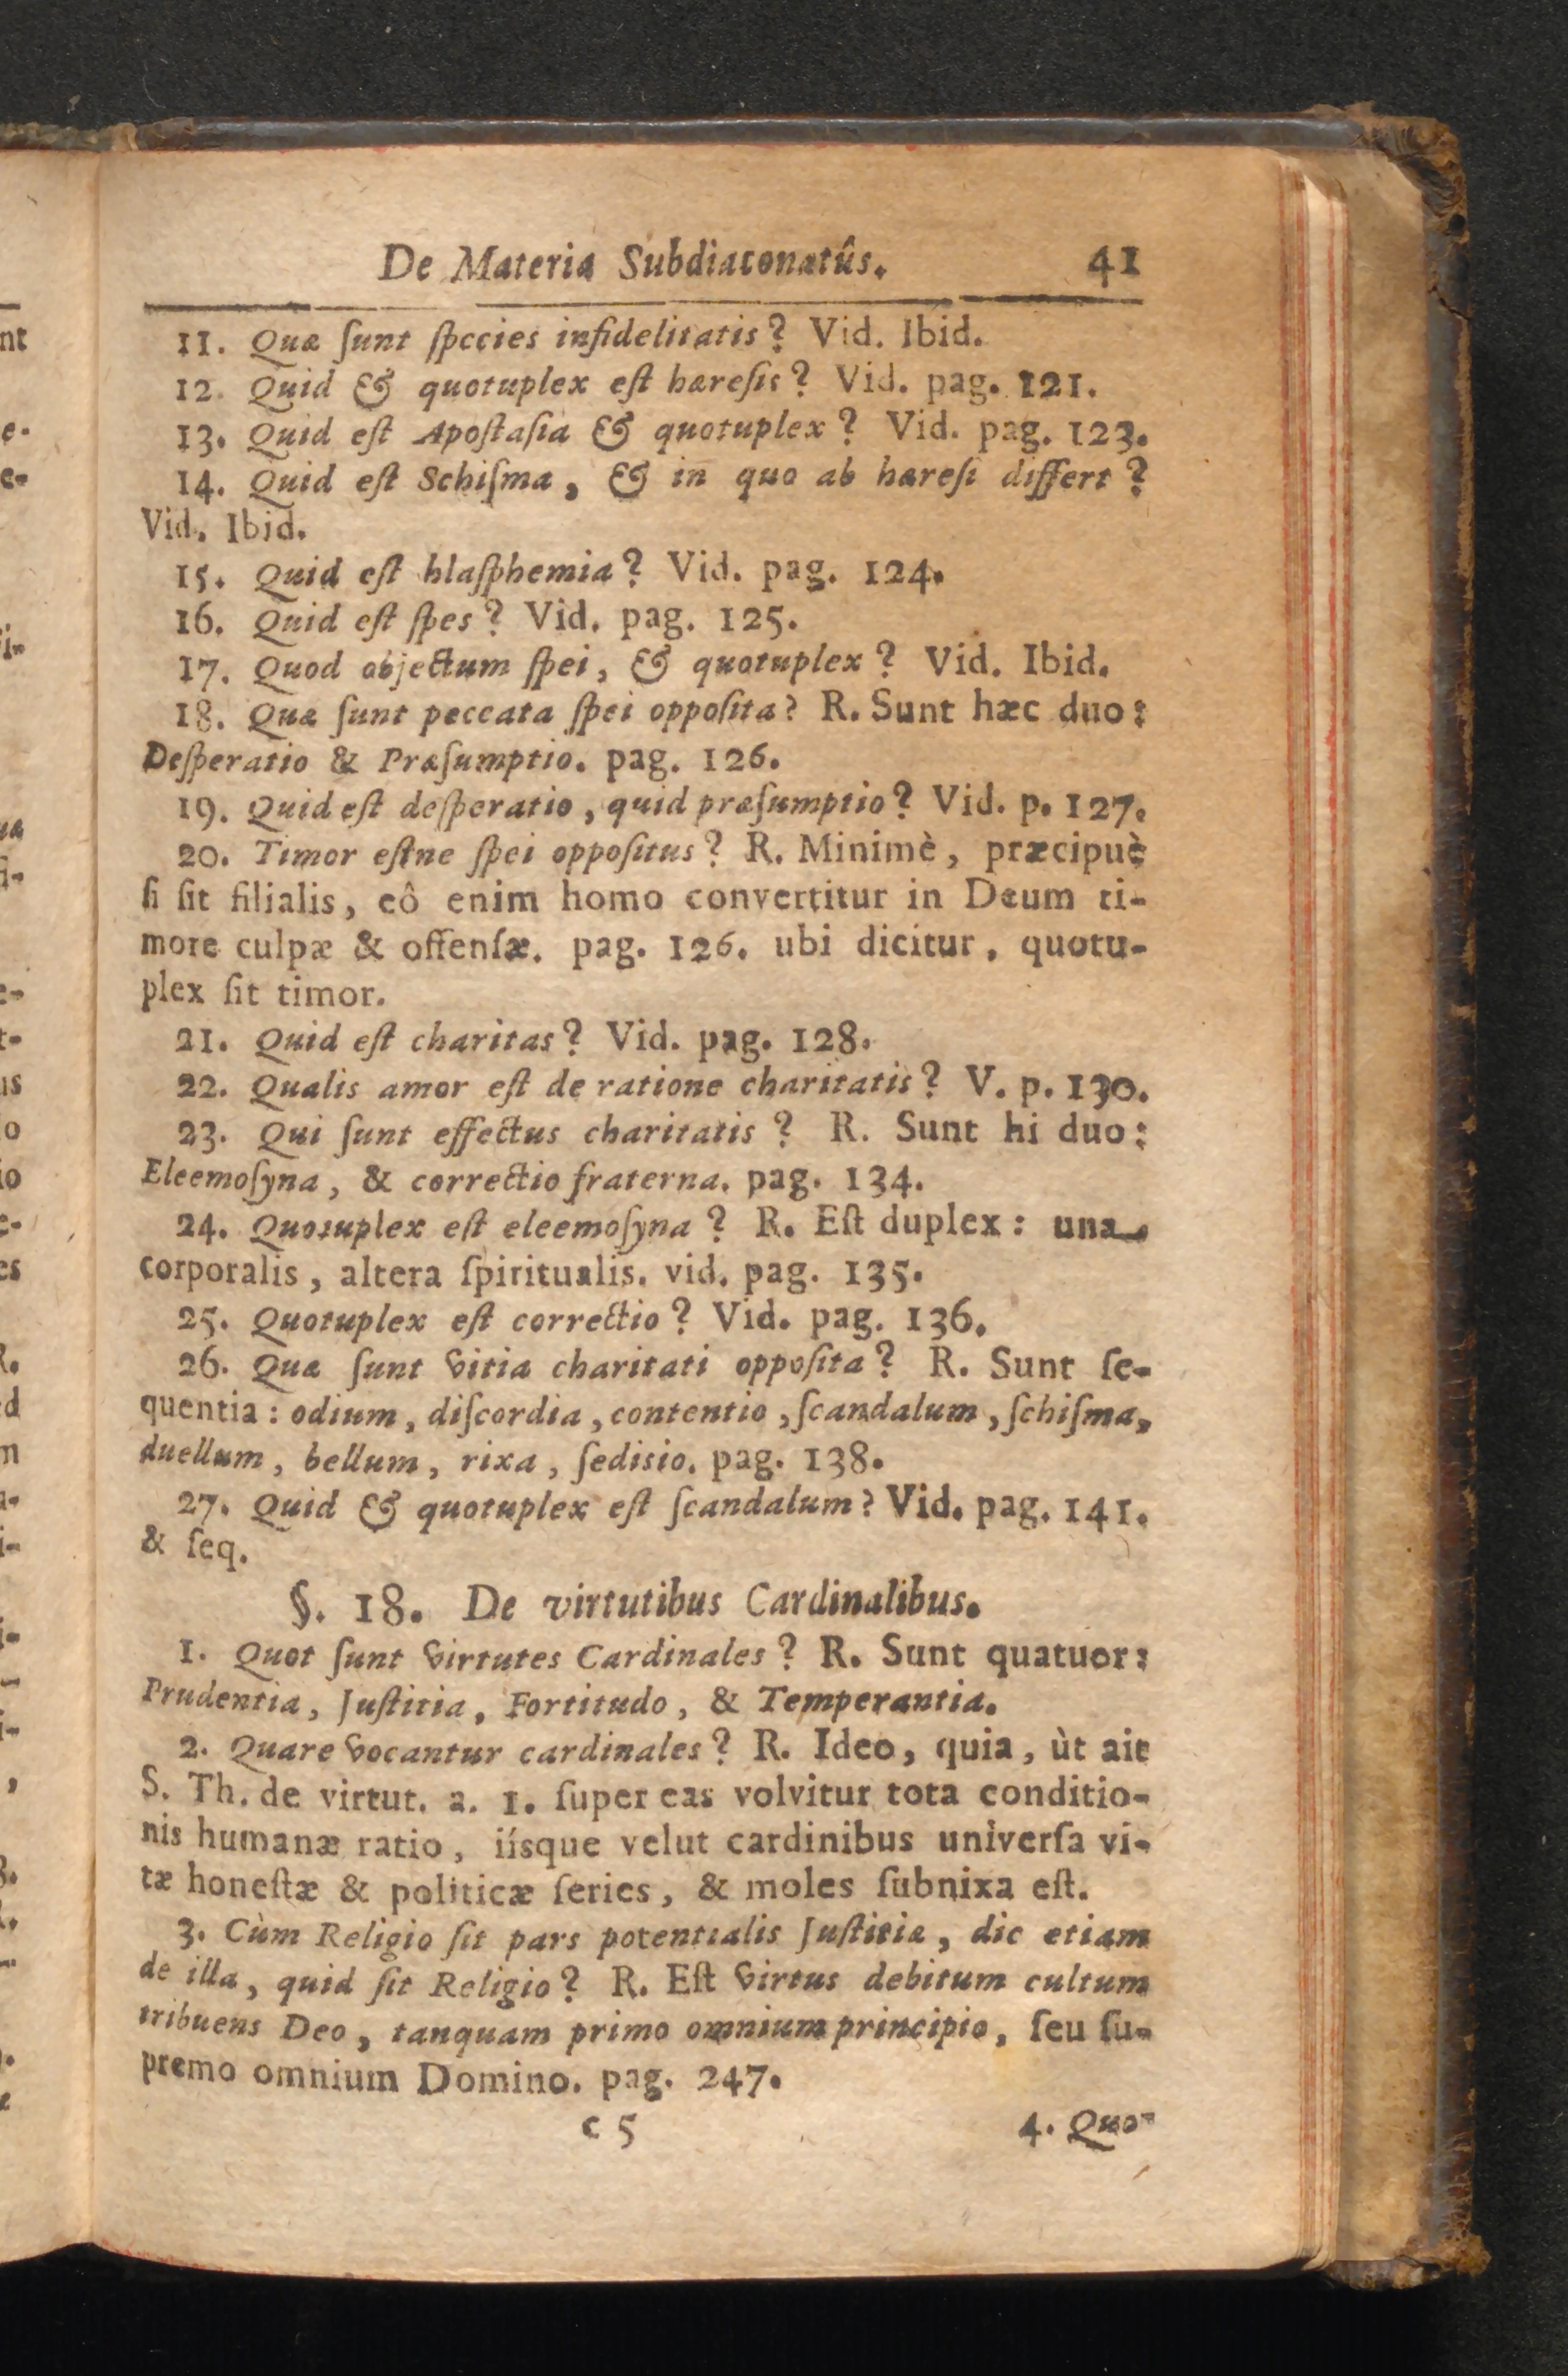 De Materia Subdiaconatûs. 41
11. Quæ ſunt ſpecies infidelitatis? Vid. Ibid.
12. Quid & quotuplex eſt hæreſis? Vid. pag. 121.
13. Quid eſt Apoſtaſia & quotuplex? Vid. pag. 123.
14. Quid eſt Schiſma, & in quo ab hæreſi differt?
Vid. Ibid.
15. Quid eſt blaſphemia? Vid. pag. 124.
16. Quid eſt ſpes? Vid. pag. 125.
17. Quod objectum ſpei, & quotuplex? Vid. Ibid.
18. Quæ ſunt peccata ſpei oppoſita? R. Sunt hæc duo:
Deſperatio & Præſumptio. pag. 126.
19. Quid eſt deſperatio, quid præſumptio? Vid. p. 127.
20. Timor eſtne ſpei oppoſitus? R. Minimè, præcipuè
ſi ſit filialis, eô enim homo convertitur in Deum ti-
more culpæ & offenſæ. pag. 126. ubi dicitur, quotu-
plex ſit timor.
21. Quid eſt charitas? Vid. pag. 128.
22. Qualis amor eſt de ratione charitatis? V. p. 130.
23. Qui ſunt effectus charitatis? R. Sunt hi duo:
Eleemoſyna, & correctio fraterna. pag. 134.
24. Quotuplex eſt eleemoſyna? R. Eſt duplex: una
corporalis, altera ſpiritualis. vid. pag. 135.
25. Quotuplex eſt correctio? Vid. pag. 136.
26. Quæ ſunt vitia charitati oppoſita? R. Sunt ſe-
quentia: odium, diſcordia, contentio, ſcandalum, ſchiſma,
duellum, bellum, rixa, ſedisio. pag. 138.
27. Quid & quotuplex eſt ſcandalum? Vid. pag. 141.
& ſeq.
§. 18. De virtutibus Cardinalibus.
1. Quot ſunt virtutes Cardinales? R. Sunt quatuor:
Prudentia, Juſtitia, Fortitudo, & Temperantia.
2. Quare vocantur cardinales? R. Ideo, quia, ùt ait
S. Th. de virtut. a. 1. ſuper eas volvitur tota conditio-
nis humanæ ratio, iísque velut cardinibus univerſa vi-
tæ honeſtæ & politicæ ſeries, & moles ſubnixa eſt.
3. Cùm Religio ſit pars potentialis Juſtitiæ, dic etiam
de illa, quid ſit Religio? R. Eſt virtus debitum cultum
tribuens Deo, tanquam primo omnium principio, ſeu ſu-
premo omnium Domino. pag. 247.
c 5 4. Quo-